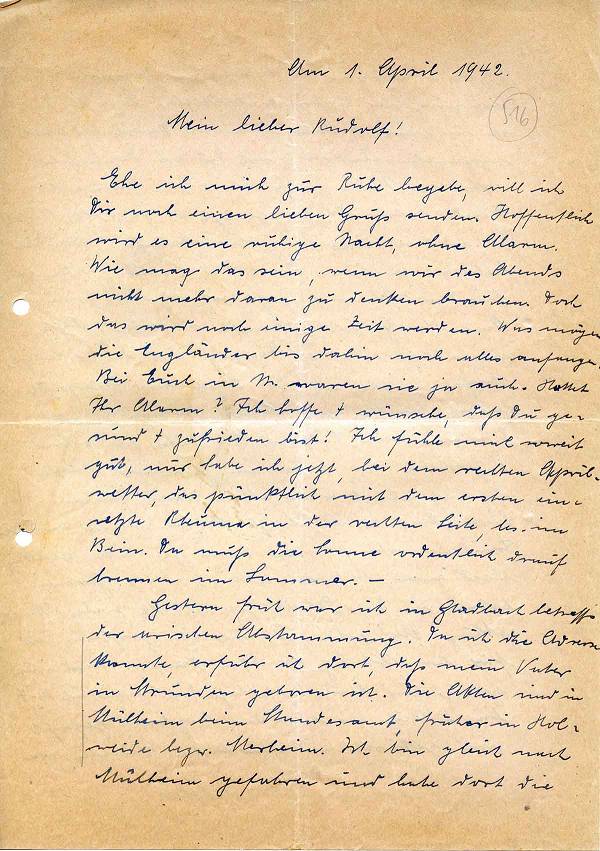 Am 1. April 1942.
516
Mein lieber Rudolf!
Ehe ich mich zur Ruhe begebe, will ich
Dir noch einen lieben Gruß senden. Hoffentlich
wird es eine ruhige Nacht, ohne Alarm.
Wie mag das sein, wenn wir des Abends
nicht mehr daran zu denken brauchen. Doch
das wird noch einige Zeit werden. Was mögen
die Engländer bis dahin noch alles anfangen.
Bei Euch in M. waren sie ja auch. Hattet
Ihr Alarm? Ich hoffe + wünsche, daß Du ge-
sund + zufrieden bist! Ich fühle mich soweit
gut, nur habe ich jetzt, bei dem rechten April-
wetter, das pünktlich mit dem ersten ein-
setzte Rheuma in der rechten Seite, bes. im
Bein. Da muß die Sonne ordentlich drauf
brennen im Sommer. —
Gestern früh war ich in Gladbach betreffs
der arischen Abstammung. Da ich die Adresse
konnte, erfuhr ich dort, daß mein Vater
in Strunden geboren ist. Die Akten sind in
Mülheim beim Standesamt, früher in Hol-
weide bezw. Merheim. Ich bin gleich nach
Mülheim gefahren und habe dort die